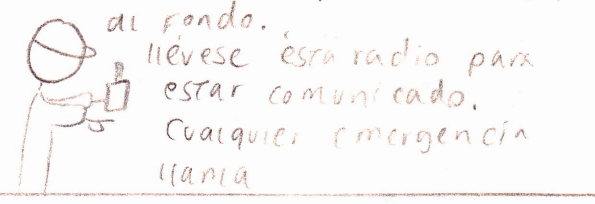 al fondo.
llévese ésta radio para
estar comunicado.
Cualquier emergencia
llama